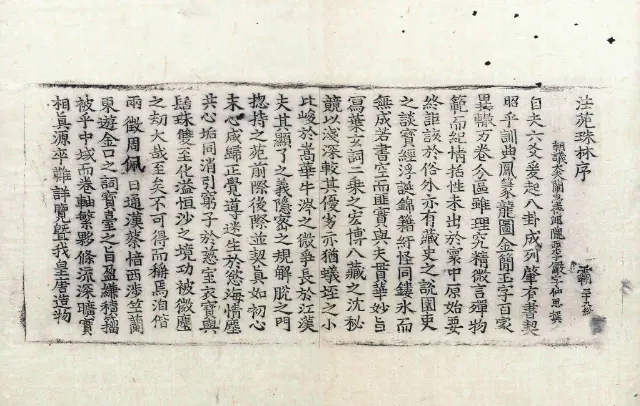 法苑珠林序 霸
朝議大夫蘭臺侍郎隴西李儼字仲思撰
自夫六爻爰起八卦成列肇有書契
昭乎訓典鳳篆龍圖金簡玉字百家
異轍万卷分區雖理究精微言殫物
範而紀情括性未出於寰中原始要
終詎該於俗外亦有藏史之說園吏
之談寶經浮誕錦籍紆怪同鏤氷而
無成若書空而匪實與夫貫華妙旨
寫葉玄詞二乘之宏博八藏之沈秘
競以淺深較其優劣亦猶蟻垤之小
比峻於嵩華牛涔之微爭長於江漢
夫其顯了之義隱密之規解脫之門
揔持之苑前際後際並契真如初心
末心咸歸正覺導迷生於慾海情塵
共心垢同消引窮子於慈室衣寶與
髻珠雙至化溢恒沙之境功被微塵
之劫大哉至矣不可得而稱焉洎偕
雨徵周佩日通漢蔡愔西涉竺蘭
東遊金口之詞寶臺之旨盈縑積籀
被乎中域而卷軸繁夥條流深曠實
相真源卒難詳覽暨我皇唐造物